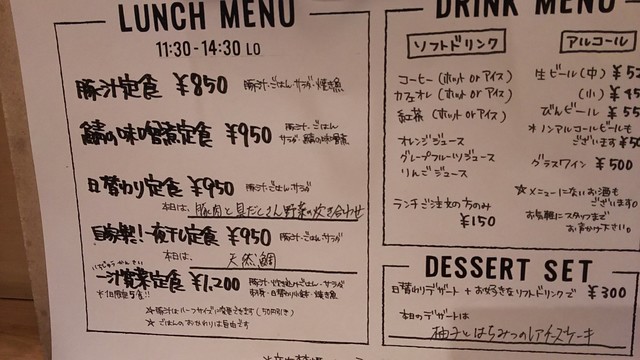 LUNCH MENU
11:30-14:30 LO
豚汁定食 ¥850 豚汁・ごはん・サラダ・焼き魚
鯖の味噌煮定食 ¥950 豚汁・ごはん
サラダ・鯖の味噌煮
日替わり定食 ¥950 豚汁・ごはん・サラダ
本日は、豚肉と具だくさん野菜の炊き合わせ
自家製!一夜干し定食 ¥950 豚汁・ごはん・サラダ
本日は、天然鯛
いちじゅうかんさい
一汁賛菜定食 ¥1,200 豚汁・炊き込みごはん・サラダ
*1日限定5食!! 刺身・日替わり小鉢・焼き魚
☆豚汁はハーフサイズに変更できます(50円引き)
☆ごはんのおかわりは自由です
DRINK MENU
ソフトドリンク
コーヒー(ホット or アイス)
カフェオレ(ホット or アイス)
紅茶(ホット or アイス)
オレンジジュース
グレープフルーツジュース
りんごジュース
ランチご注文の方のみ
¥150
アルコール
生ビール(中) ¥5
(小) ¥45
びんビール ¥55
*ノンアルコールビールも
ございます ¥50
グラスワイン ¥500
☆メニューにないお酒も
ございます。
お気軽にスタッフまで
お声かけ下さい。
DESSERT SET
日替わりデザート + お好きなソフトドリンクで ¥300
本日のデザートは
柚子とはちみつのレアチーズケーキ